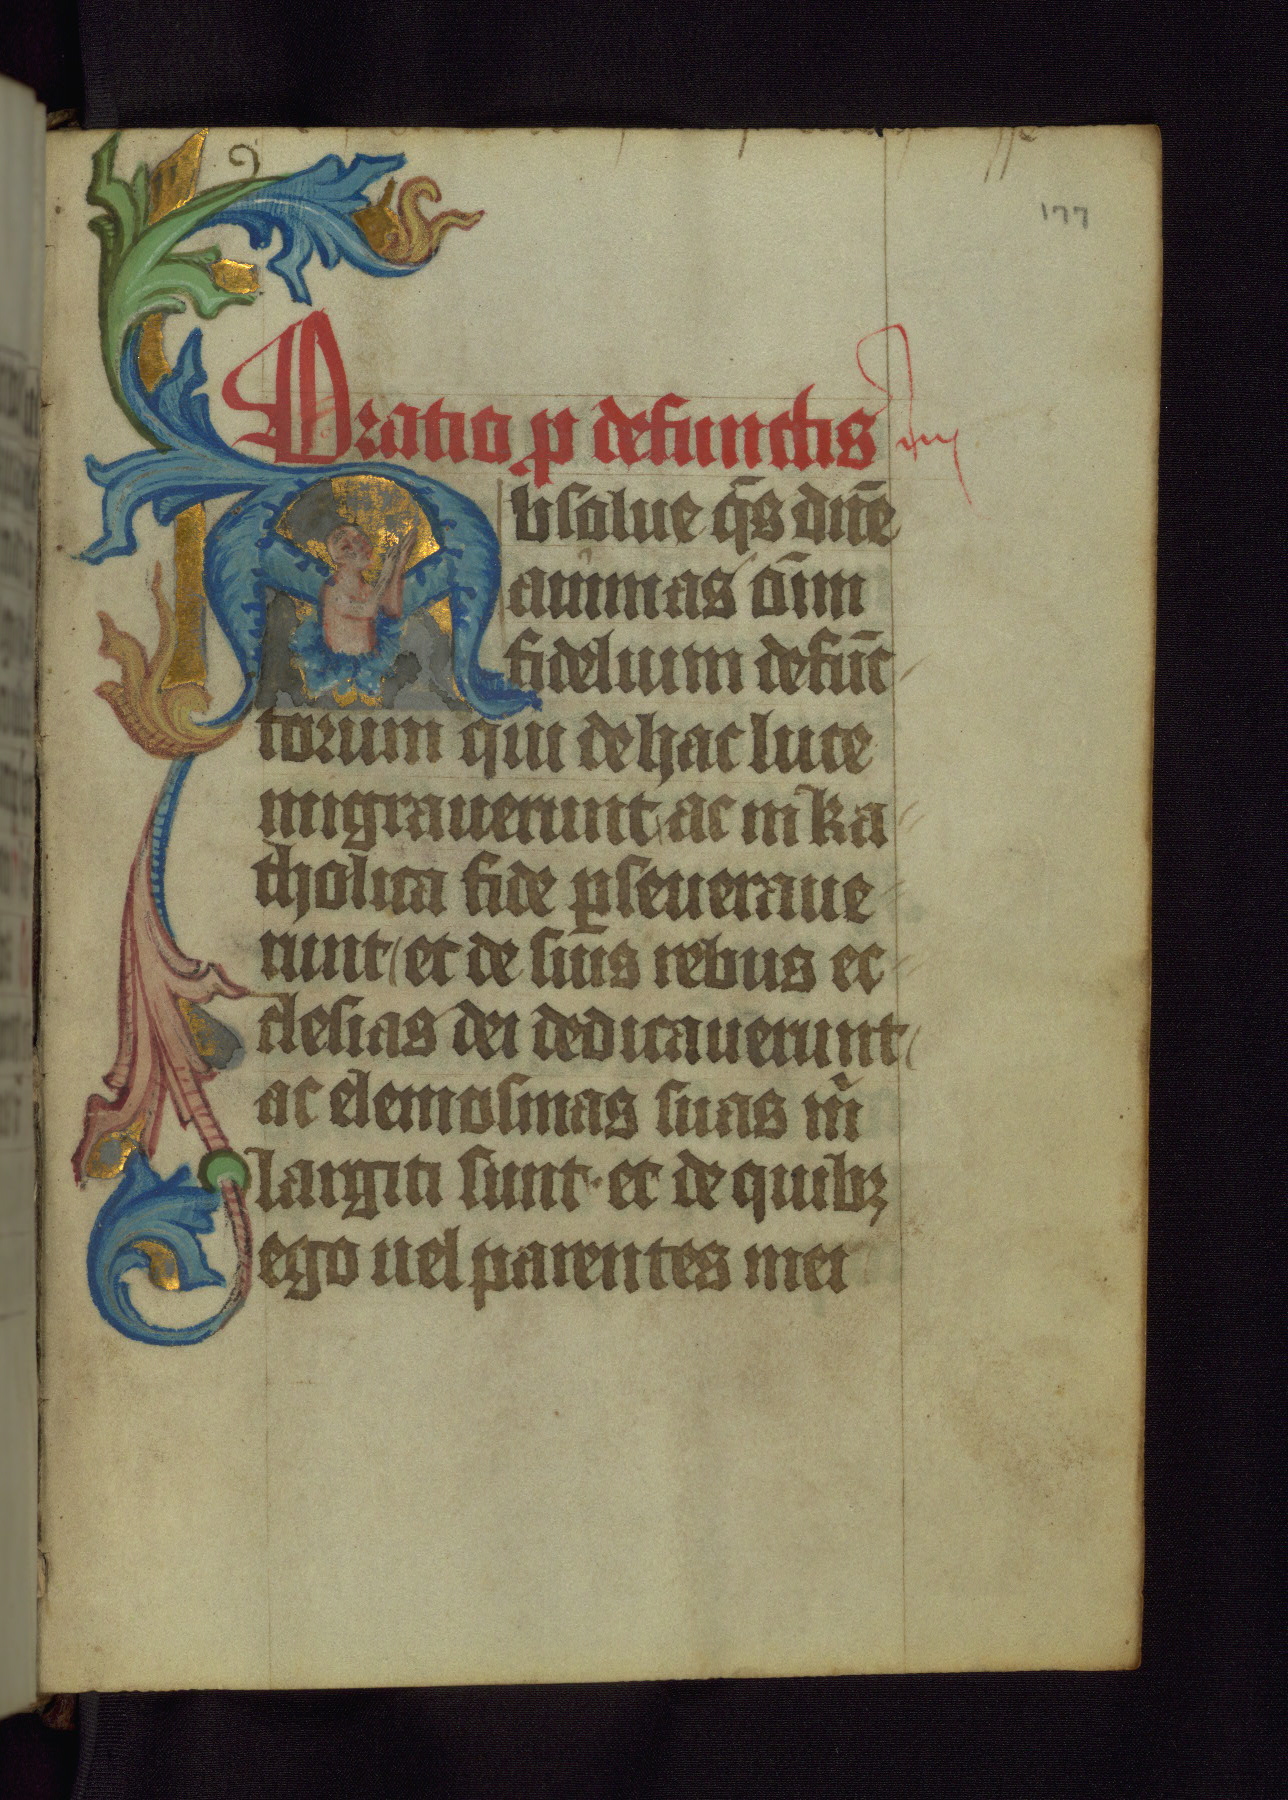 177
Oratio p defunctis
Absolue q̄s dn̄e
animas om̄
fidelium defūc
torum qui de hac luce
migrauerunt ac in ka
tholica fide ꝑseueraue
runt et de suis rebus ec
clesias dei dedicauerunt
ac elemosinas suas
largiti sunt · et de quibꝫ
ego uel parentes mei